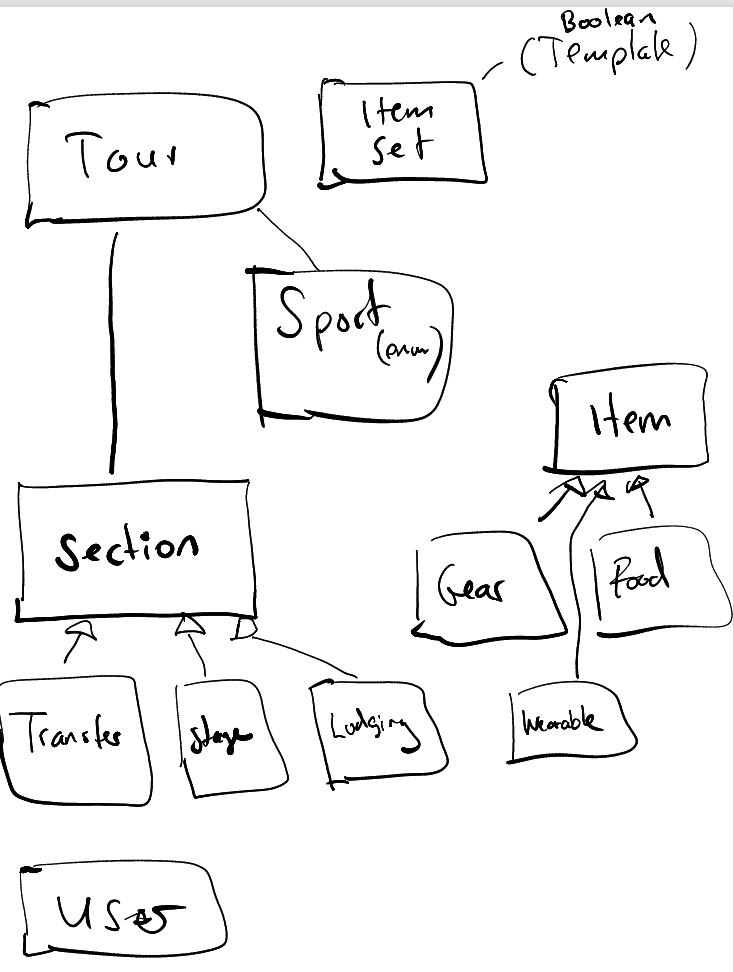 Boolean
(Template)
Item
set
Tour
Sport
(enum)
Item
Section
Gear
Food
Transfer
Stage
Lodging
Wearable
User